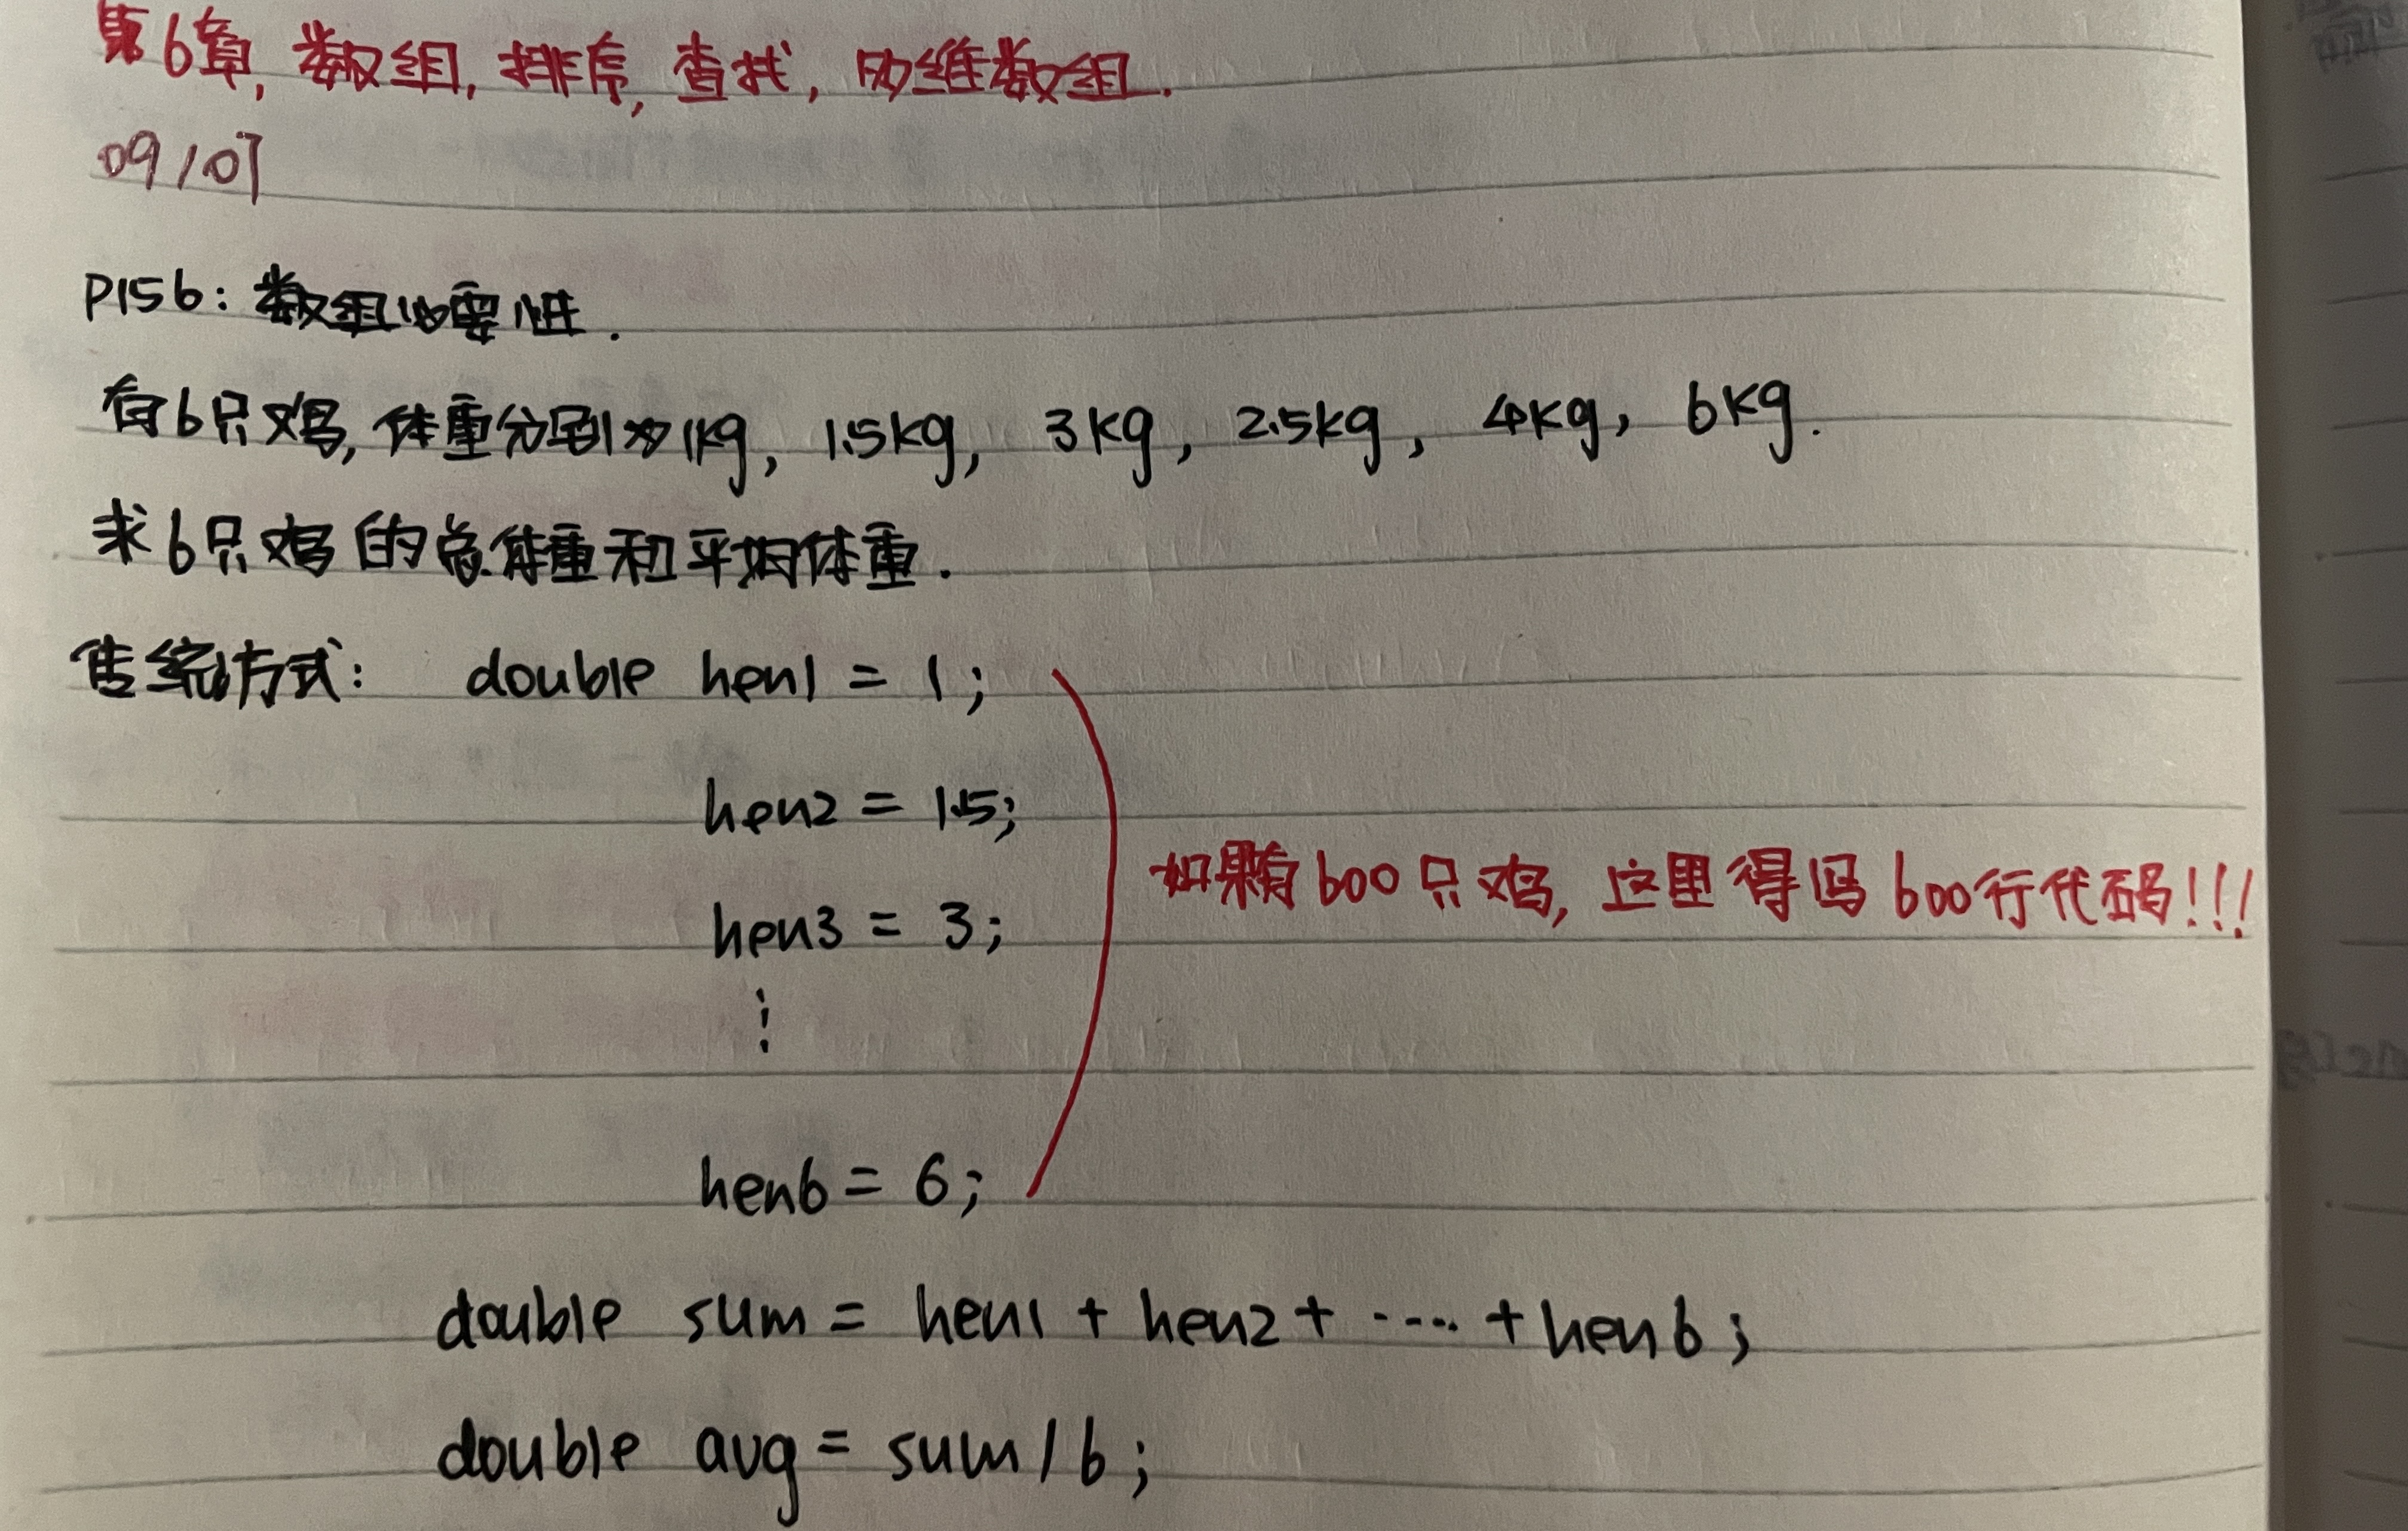 第6章, 数组, 排序, 查找, 多维数组.
09/07
P156: 数组必要性.
有6只鸡, 体重分别为1kg, 1.5kg, 3kg, 2.5kg, 4kg, 6kg.
求6只鸡的总体重和平均体重.
传统方式: double hen1 = 1;
hen2 = 1.5;
hen3 = 3;
如果有600只鸡, 这里得写600行代码!!!
⋮
hen6 = 6;
double sum = hen1 + hen2 + ···· + hen6;
double avg = sum/6;